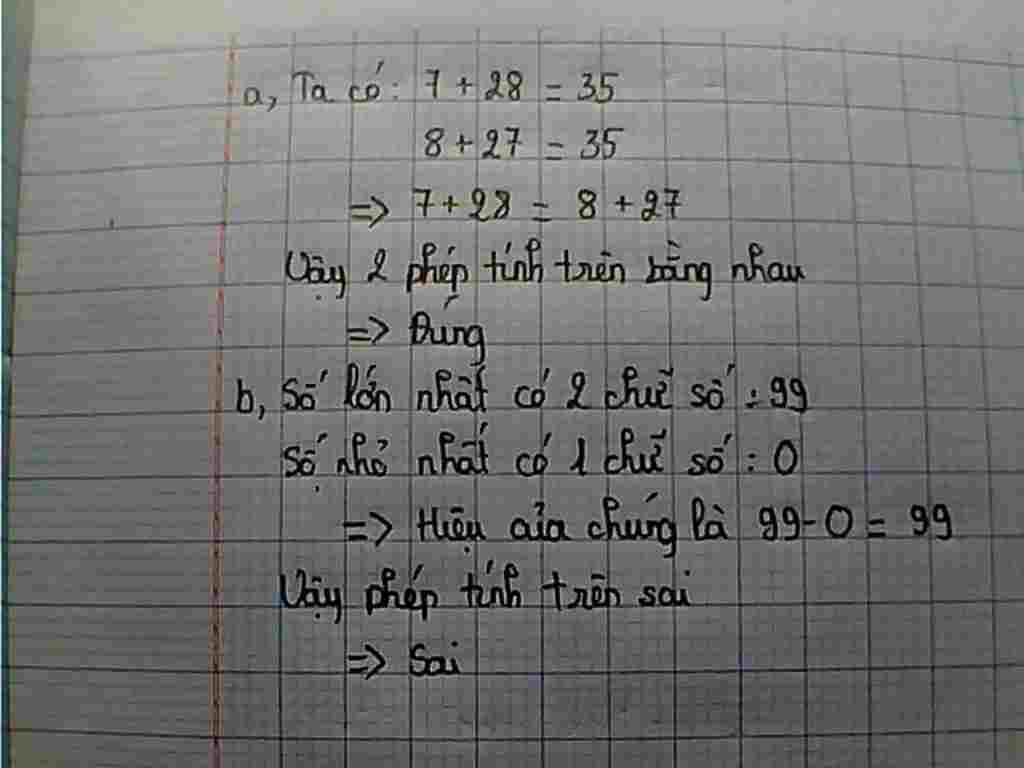 a, Ta có: 7 + 28 = 35
8 + 27 = 35
=> 7 + 28 = 8 + 27
Vậy 2 phép tính trên bằng nhau
=> Đúng
b, Số lớn nhất có 2 chữ số : 99
Số nhỏ nhất có 1 chữ số : 0
=> Hiệu của chúng là 99 - 0 = 99
Vậy phép tính trên sai
=> Sai